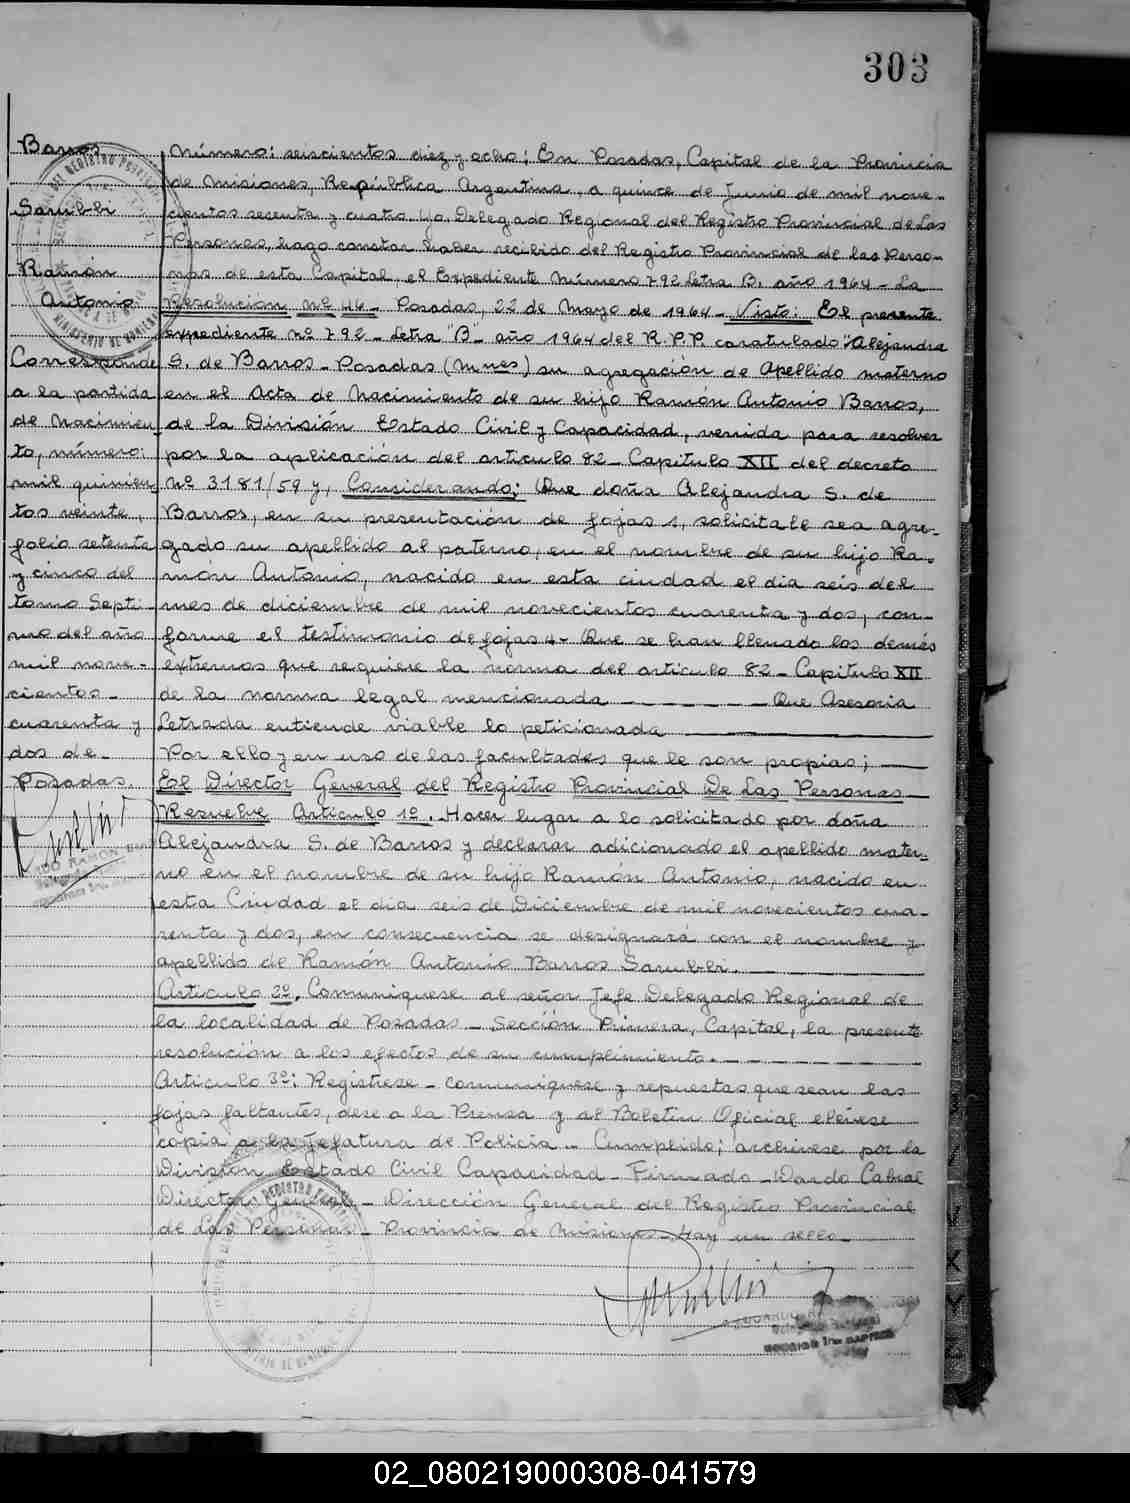 303
Barros
Sarubbi
Ramón
Antonio
Corresponde
a la partida
de Nacimien-
to, número:
mil quinien-
tos veinte,
folio setenta
y cinco del
tomo Septi-
mo del año
mil nove-
cientos-
cuarenta y
dos de-
Posadas.
Número: seiscientos diez y ocho; En Posadas, Capital de la Provincia
de Misiones, República Argentina, a quince de Junio de mil nove-
cientos sesenta y cuatro. Yo, Delegado Regional del Registro Provincial de Las
Personas, hago constar haber recibido del Registro Provincial de las Perso-
nas de esta Capital, el Expediente Número 792 Letra B. año 1964 - La
Resolución nº 46 - Posadas, 22 de Mayo de 1964 - Visto: El presente
expediente nº 792 - Letra "B" - año 1964 del R.P.P. caratulado "Alejandra
S. de Barros - Posadas (Mnes) su agregación de Apellido materno
en el Acta de Nacimiento de su hijo Ramón Antonio Barros,
de la División Estado Civil y Capacidad, venida para resolver
por la aplicación del artículo 82 - Capítulo XII del decreto
Nº 3181/59 y, Considerando; Que doña Alejandra S. de
Barros, en su presentación de fojas 1, solicita le sea agre-
gado su apellido al paterno, en el nombre de su hijo Ra-
món Antonio, nacido en esta ciudad el día seis del
mes de diciembre de mil novecientos cuarenta y dos, con-
forme el testimonio de fojas 4 - Que se han llenado los demás
extremos que requiere la norma del artículo 82 - Capítulo XII
de la norma legal mencionada - Que Asesoría
Letrada entiende viable lo peticionada
Por ello y en uso de las facultades que le son propias;
El Director General del Registro Provincial De Las Personas -
Resuelve Artículo 1º. Hacer lugar a lo solicitado por doña
Alejandra S. de Barros y declarar adicionado el apellido mater-
no en el nombre de su hijo Ramón Antonio, nacido en
esta Ciudad el día seis de Diciembre de mil novecientos cua-
renta y dos, en consecuencia se designará con el nombre y
apellido de Ramón Antonio Barros Sarubbi.
Artículo 2º. Comuníquese al señor Jefe Delegado Regional de
la localidad de Posadas - Sección Primera, Capital, la presente
resolución a los efectos de su cumplimiento.
Artículo 3º: Regístrese - comuníquese y repuestas que sean las
fojas faltantes, dese a la Prensa y al Boletín Oficial elévese
copia a la Jefatura de Policía - Cumplido; archívese por la
División Estado Civil Capacidad - Firmado - Wardo Cabral
Director General - Dirección General del Registro Provincial
de Las Personas - Provincia de Misiones - Hay un sello -
02_080219000308-041579